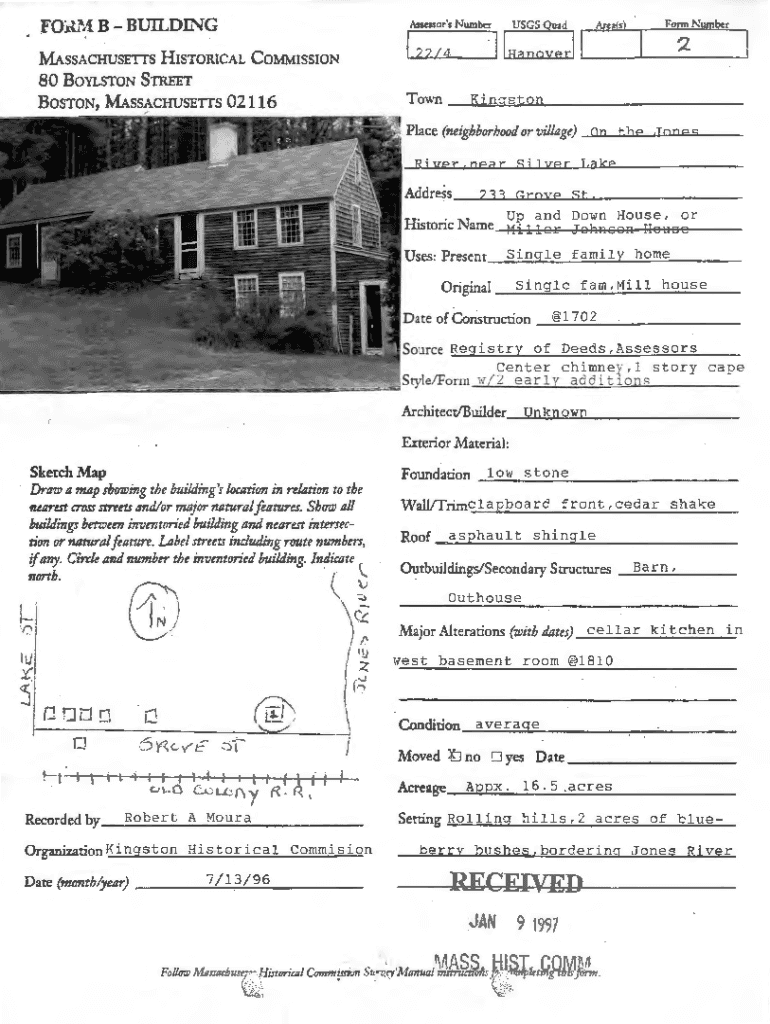 FORM B – BUILDING
MASSACHUSETTS HISTORICAL COMMISSION
80 BOYLSTON STREET
BOSTON, MASSACHUSETTS 02116
Assessor's Number USGS Quad Area(s) Form Number
22/4 Hanover 2
Town Kingston
Place (neighborhood or village) On the Jones
River,near Silver Lake
Address 233 Grove St.
Historic Name Up and Down House, or
Miller Johnson House
Uses: Present Single family home
Original Single fam,Mill house
Date of Construction @1702
Source Registry of Deeds,Assessors
Center chimney,1 story cape
Style/Form w/2 early additions
Architect/Builder Unknown
Exterior Material:
Foundation low stone
Wall/Trim clapboard front,cedar shake
Roof asphalt shingle
Outbuildings/Secondary Structures Barn,
Outhouse
Major Alterations (with dates) cellar kitchen in
west basement room @1810
Condition average
Moved X no yes Date
Acreage Appx. 16.5 acres
Setting Rolling hills,2 acres of blue-
berry bushes,bordering Jones River
Sketch Map
Draw a map showing the building's location in relation to the
nearest cross streets and/or major natural features. Show all
buildings between inventoried building and nearest intersec-
tion or natural feature. Label streets including route numbers,
if any. Circle and number the inventoried building. Indicate
north.
N
LAKE ST
JONES RIVER
GROVE ST
OLD COLONY R.R.
Recorded by Robert A Moura
Organization Kingston Historical Commision
Date (month/year) 7/13/96
RECEIVED
JAN 9 1997
MASS. HIST. COMM.
Follow Massachusetts Historical Commission Survey Manual instructions for completing this form.